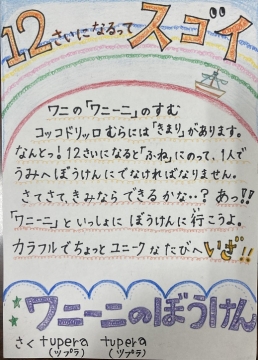 12さいになるって スゴイ
ワニの「ワニーニ」のすむ
コッコドリッロむらには「きまり」があります。
なんとっ!12さいになると「ふね」にのって、1人で
うみへぼうけんにでなければなりません。
さてさて、きみならできるかな…?あっ!!
「ワニーニ」といっしょに ぼうけんに行こうよ。
カラフルでちょっとユニークなたびへいざ!!
ワニーニのぼうけん
さく tupera tupera
(ツプラ) (ツプラ)